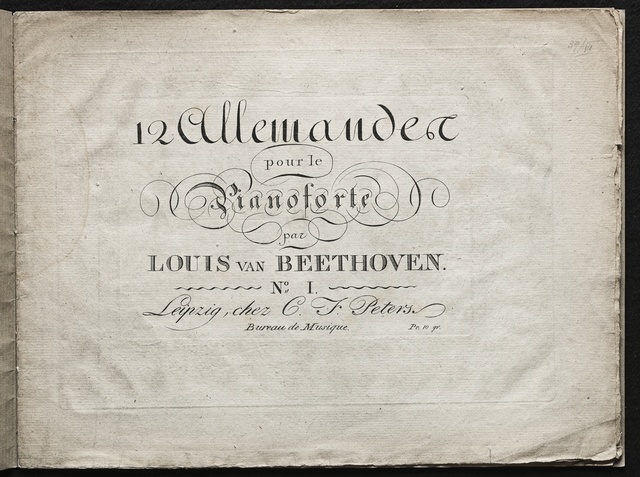 12 Allemandes
pour le
Pianoforte
par
LOUIS VAN BEETHOVEN.
No. I.
Leipzig, chez C. F. Peters
Bureau de Musique. Pr. 10 gr.